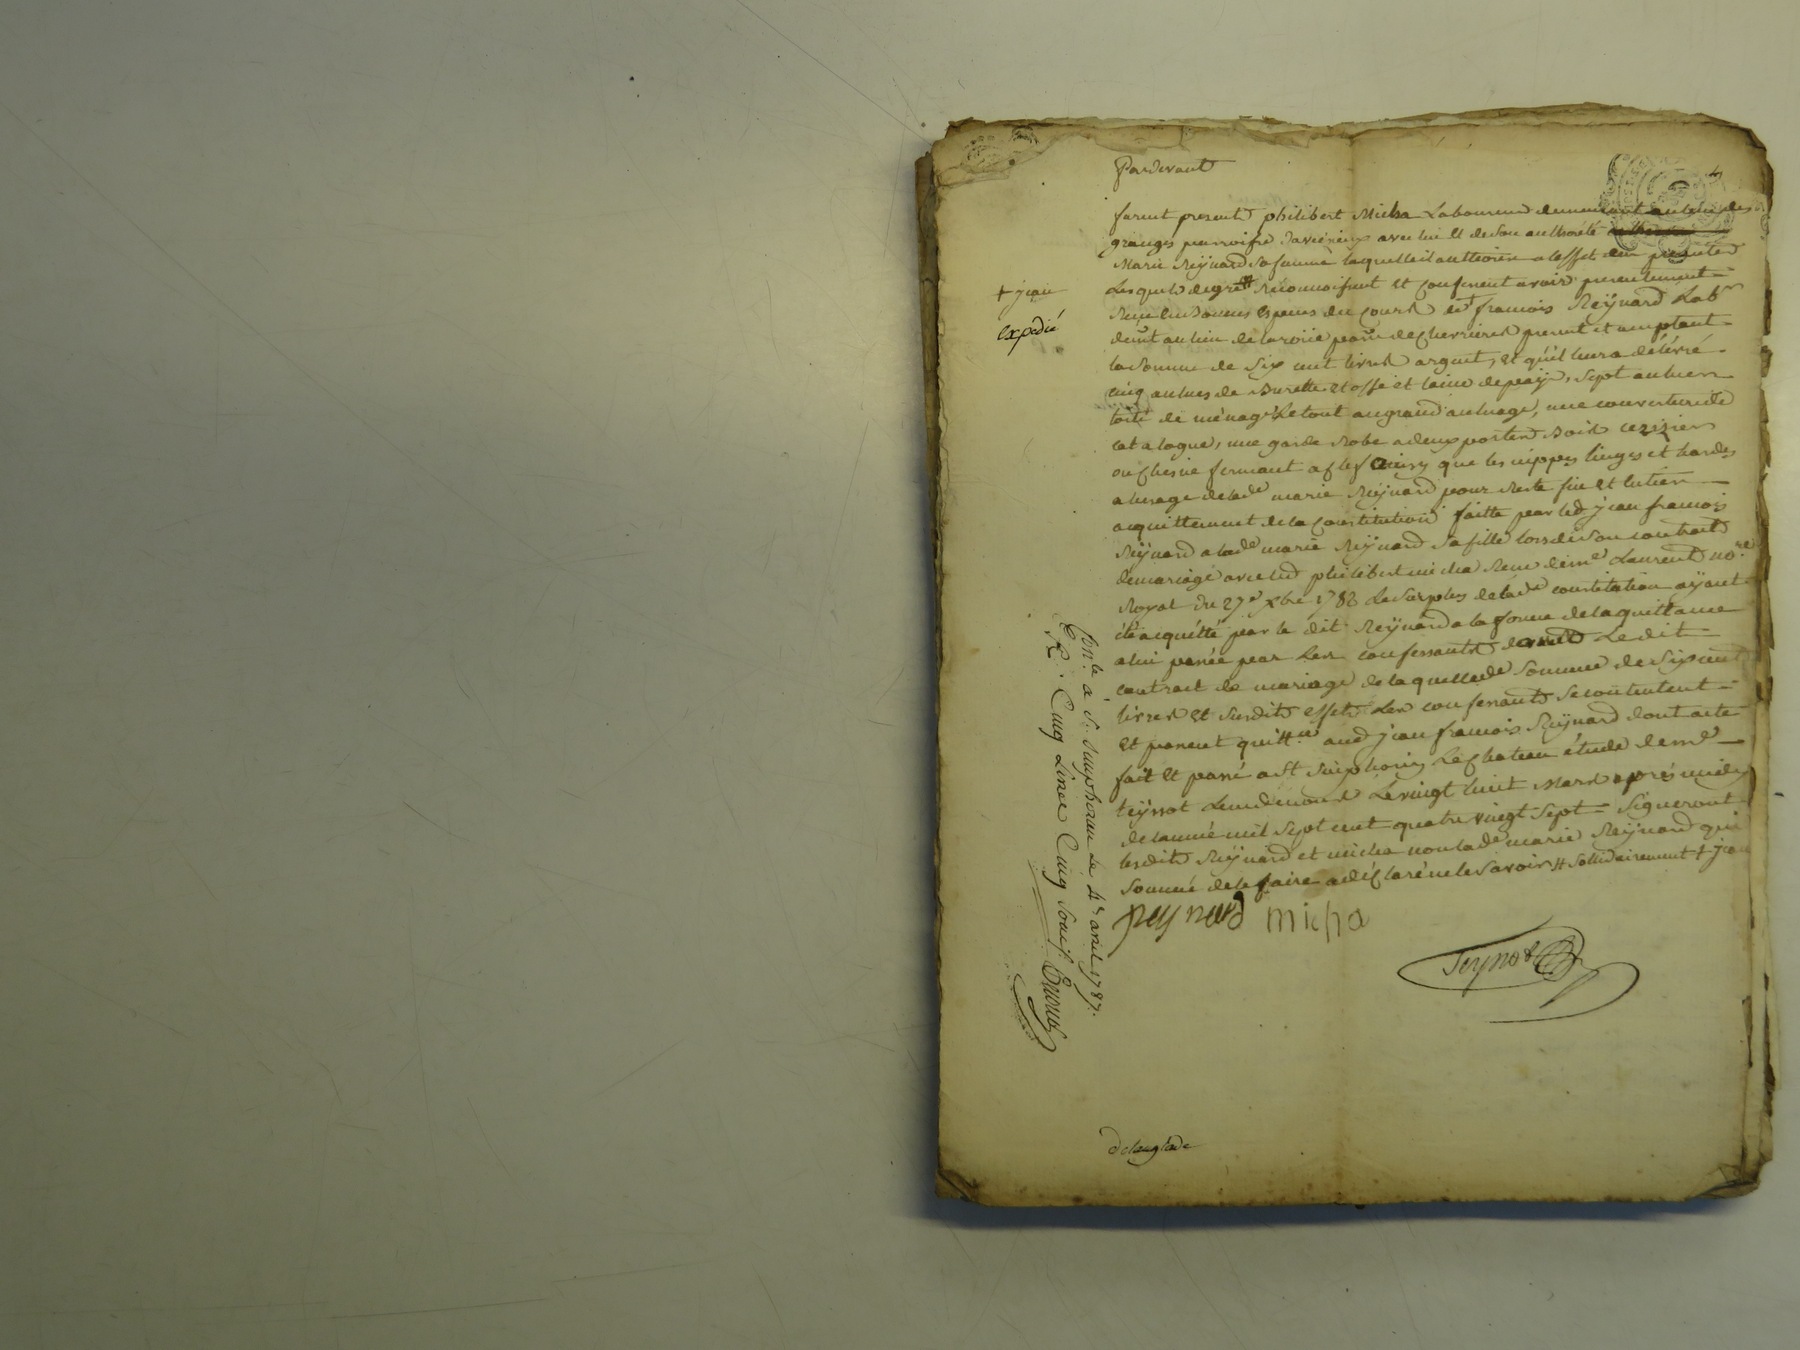 Pardevant
furent presents philibert Micha Laboureur demeurant au lieu des
granges parroisse d'avezieux avec lui et de son authorité
Marie Reÿnard sa femme laquelle il authorise a leffet des presentes
Lesquels de gré # reconnoissent et confessent avoir presentement
+ jean
expedié
Receu en bonnes especes du cours de + francois Reÿnard Lab.r
demt au lieu de la roüe parsse de Chevrieres present et acceptant
la somme de Six cent livres argent, et qu'il leur a délivré
cinq aulnes de Burette etoffe et laine de païs, sept aulnes
toile de ménage Le tout au grand aulnage, une couverture de
catalogne, une garde Robe a deux portes bois cerisier
ou chesne fermant a clef ainsy que les nippes linges et hardes
a lusage de lade marie Reÿnard pour Reste fin et entier
acquittement de la Constitution faitte par led jean francois
Reÿnard a lade marie Reÿnard Sa fille lors de Son contract
de mariage avec led philibert micha Receu de me Laurent nore
Royal du 27e xbre 178 Le Surplus de lade constitution aÿant
été acquitté par le dit Reÿnard a la forme de la quittance
a lui passée par Les confessants Le dit
contract de mariage de laquellede Somme de Six cent
livres et Susdits effets Les confessants Se contentent
et passent quittce aud jean francois Reÿnard dont acte
fait et passé a St Simphorien Le Chateau étude de me
teÿssot Lun de nous Le vingt huit Mars après midy
de l'année mil Sept cent quatre vingt Sept Signeront
lesdits Reÿnard et micha non lade marie Reÿnard qui
Sommé de le faire a déclaré ne le Savoir # Sollidairement + jean
Reynard micha
Con.le a S. Simphorien Le 4e avril 1787.
R. Cinq Livres Cinq Sous
delanglade